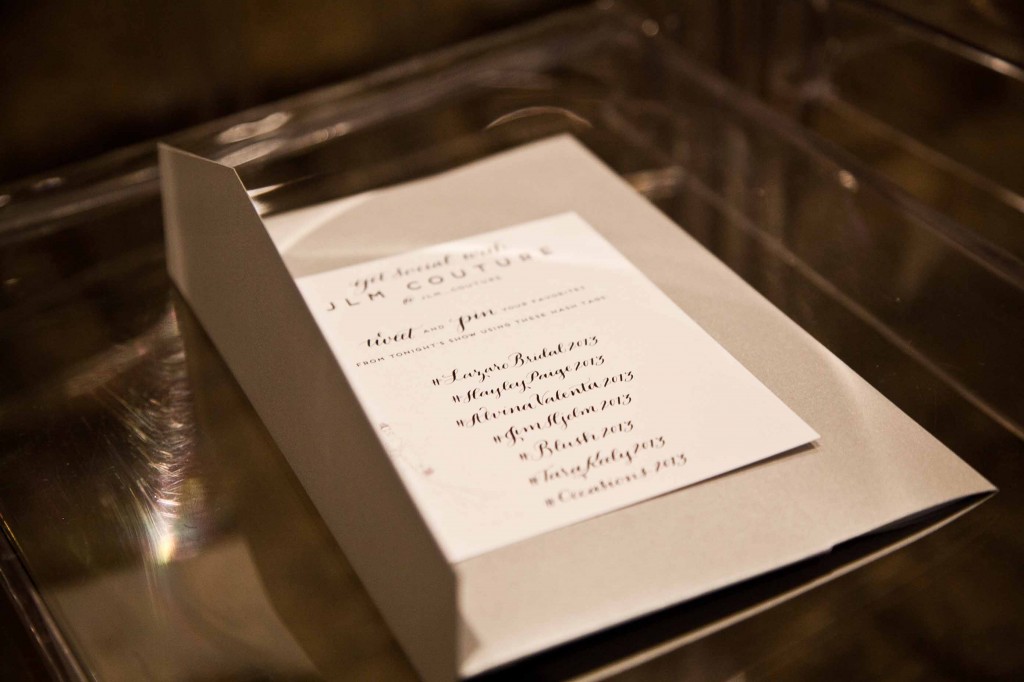 get social with
JLM COUTURE
@ JLM_COUTURE
tweet AND pin YOUR FAVORITES
FROM TONIGHT'S SHOW USING THESE HASH TAGS
#LazaroBridal2013
#HayleyPaige2013
#AlvinaValenta2013
#JimHjelm2013
#Blush2013
#TaraKeely2013
#Occasions2013